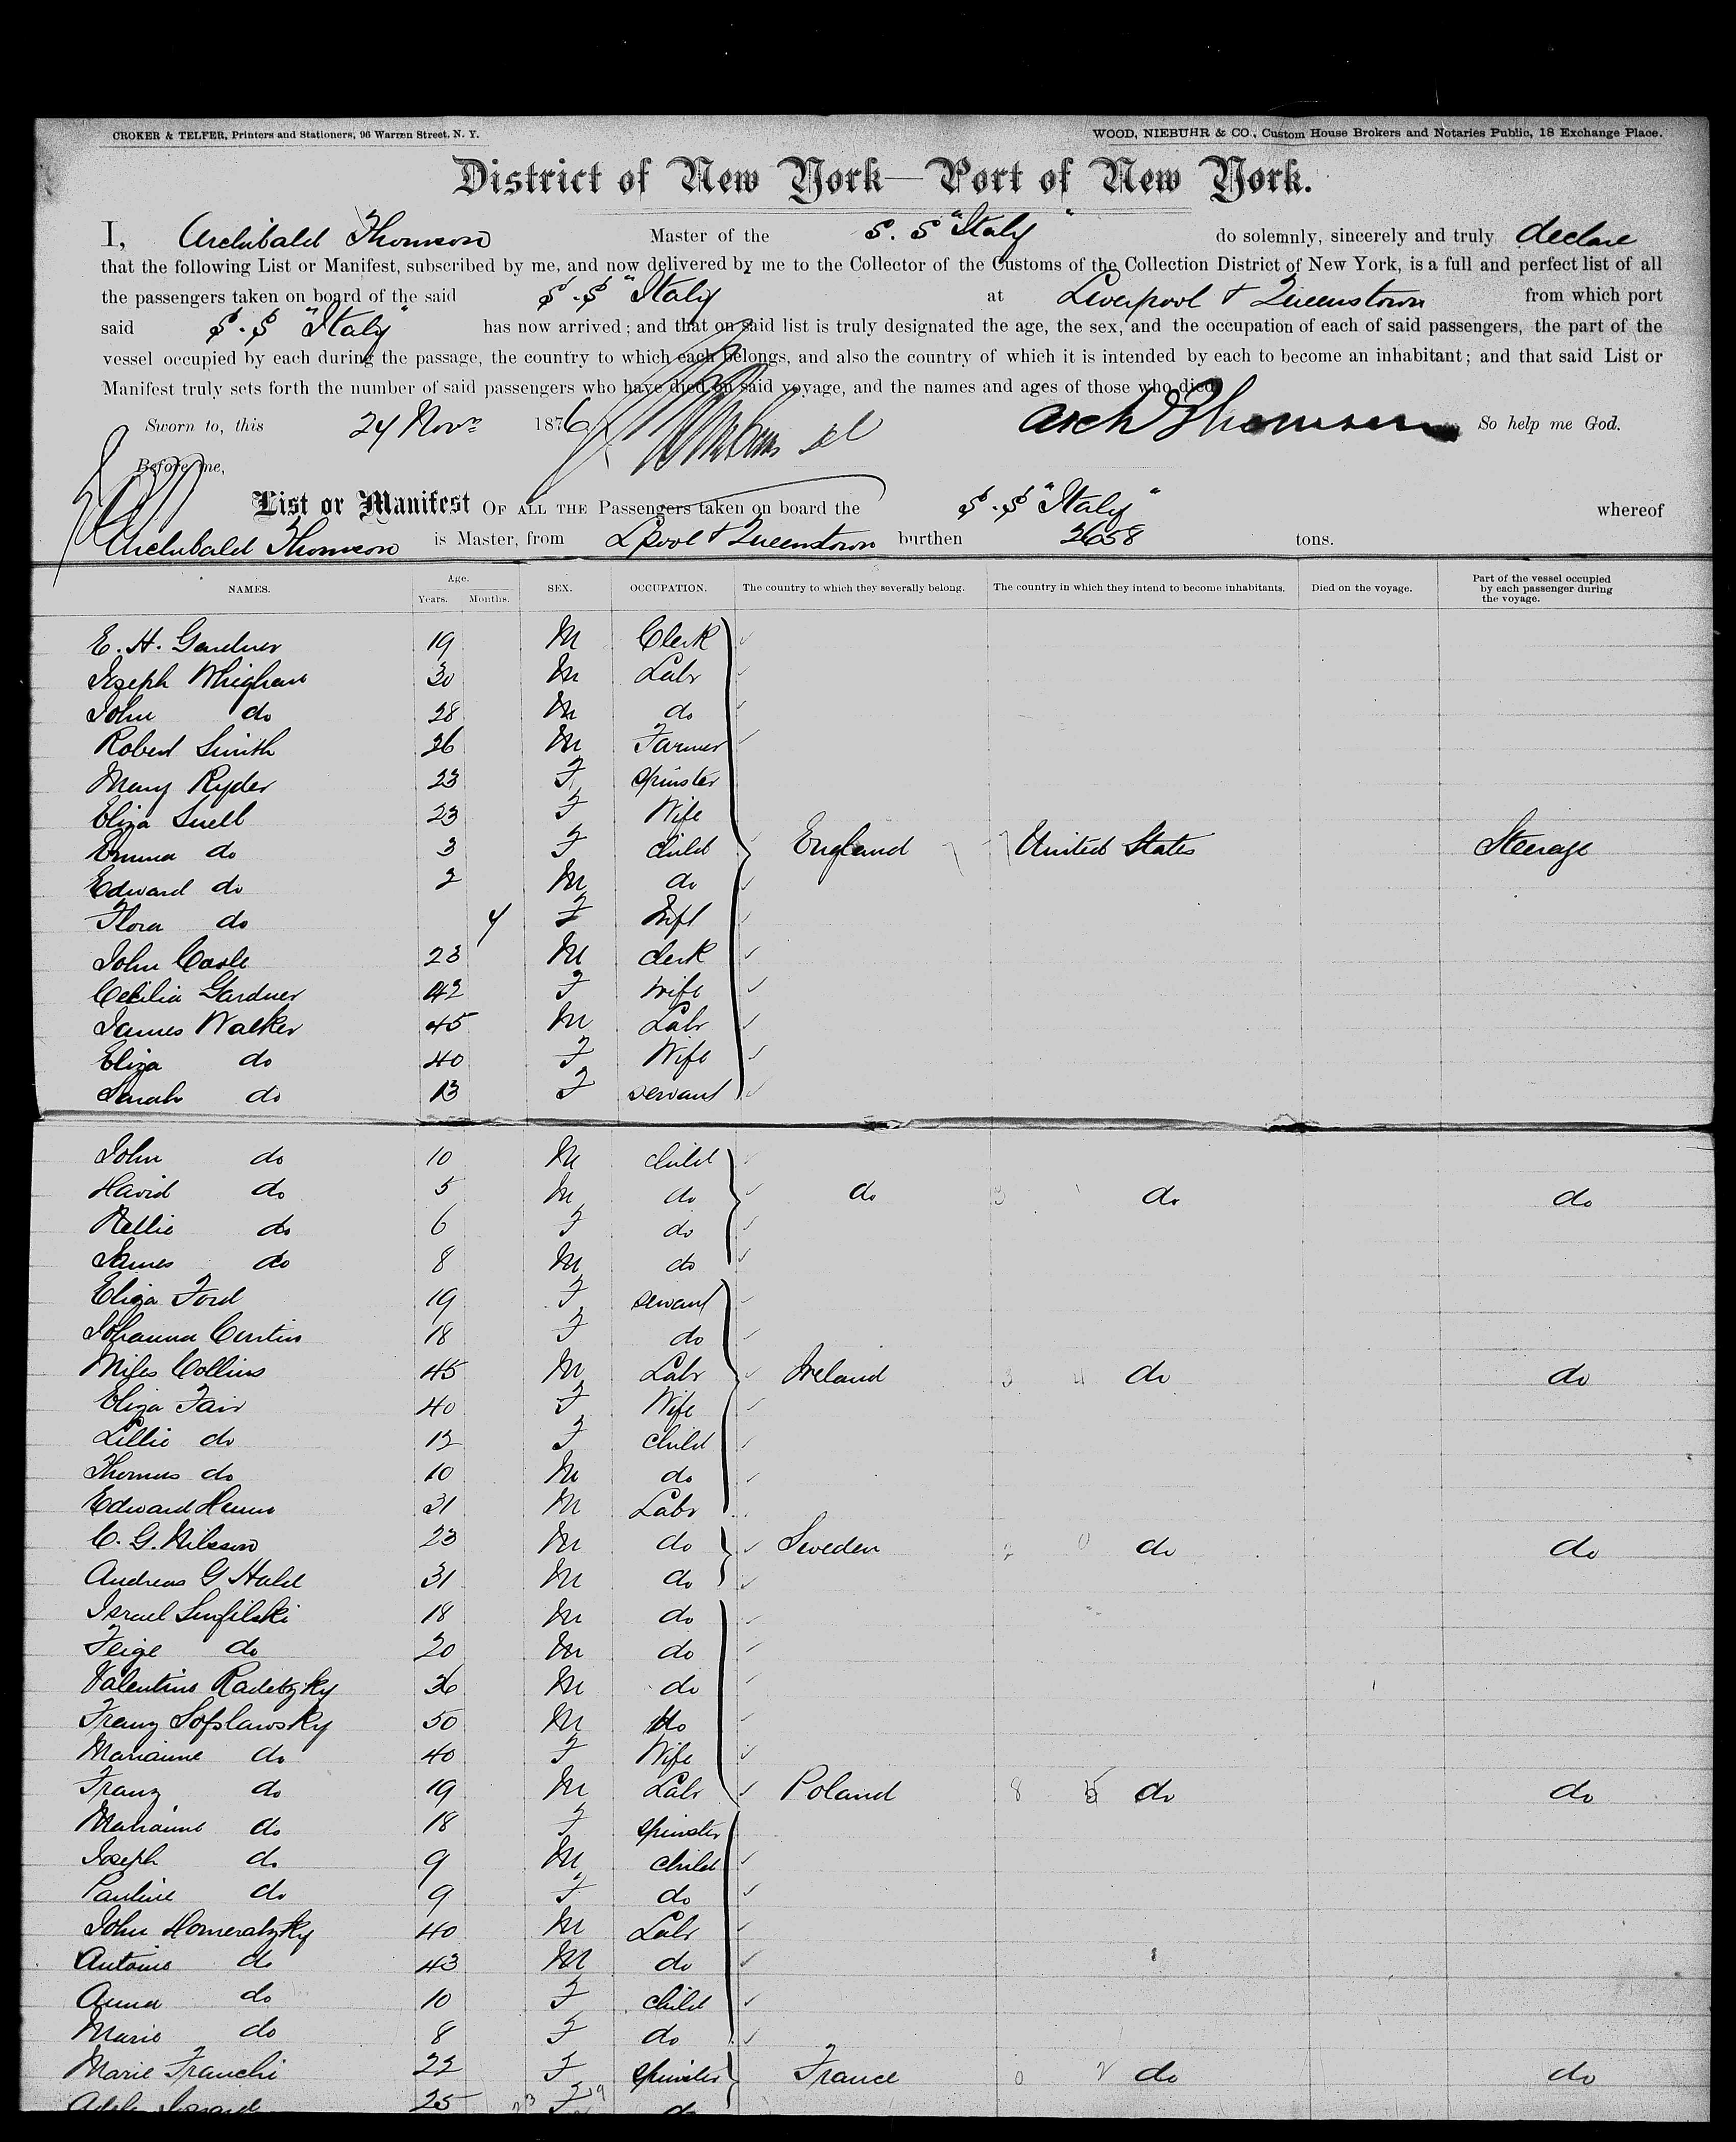 CROKER & TELFER, Printers and Stationers, 96 Warren Street, N. Y. WOOD, NIEBUHR & CO., Custom House Brokers and Notaries Public, 18 Exchange Place.
District of New York—Port of New York.
I, Archibald Thomson Master of the S. S "Italy" do solemnly, sincerely and truly declare
that the following List or Manifest, subscribed by me, and now delivered by me to the Collector of the Customs of the Collection District of New York, is a full and perfect list of all
the passengers taken on board of the said S. S "Italy" at Liverpool & Queenstown from which port
said S. S "Italy" has now arrived; and that on said list is truly designated the age, the sex, and the occupation of each of said passengers, the part of the
vessel occupied by each during the passage, the country to which each belongs, and also the country of which it is intended by each to become an inhabitant; and that said List or
Manifest truly sets forth the number of said passengers who have died on said voyage, and the names and ages of those who died.
Sworn to, this 24 Novr 1876 Arch Thomson So help me God.
Before me,
List or Manifest OF ALL THE Passengers taken on board the S. S "Italy" whereof
Archibald Thomson is Master, from Lpool & Queenstown burthen 2658 tons.
NAMES. Age. Years. Months. SEX. OCCUPATION. The country to which they severally belong. The country in which they intend to become inhabitants. Died on the voyage. Part of the vessel occupied by each passenger during the voyage.
E. H. Gardner 19 M Clerk
Joseph Whigham 30 M Labr
John do 28 M do
Robert Smith 26 M Farmer
Mary Ryder 23 F spinster
Eliza Snell 23 F Wife
Emma do 3 F child England United States Steerage
Edward do 2 M do
Flora do 4 F Inft
John Casle 23 M clerk
Cecilia Gardner 42 F wife
James Walker 45 M Labr
Eliza do 40 F Wife
Sarah do 13 F servant
John do 10 M child
David do 5 M do do do do
Nellie do 6 F do
James do 8 M do
Eliza Ford 19 F servant
Johanna Curtin 18 F do
Miles Collins 45 M Labr Ireland 3 4 do do
Eliza Fair 40 F Wife
Lillie do 12 F child
Thomas do 10 M do
Edward Hunn 31 M Labr
C. G. Nilsson 23 M do Sweden 2 0 do do
Andreas G Hald 31 M do
Israel 18 M do
Feige do 20 M do
Valentine Radetzky 36 M do
Franz Sofslawsky 50 M do
Marianne do 40 F Wife
Franz do 19 M Labr Poland 8 5 do do
Marianne do 18 F spinster
Joseph do 9 M child
Pauline do 9 F do
John Homeratzky 40 M Labr
Antoine do 43 M do
Anna do 10 F child
Marie do 8 F do
Marie Franchi 22 F spinster France 0 2 do do
25 F do